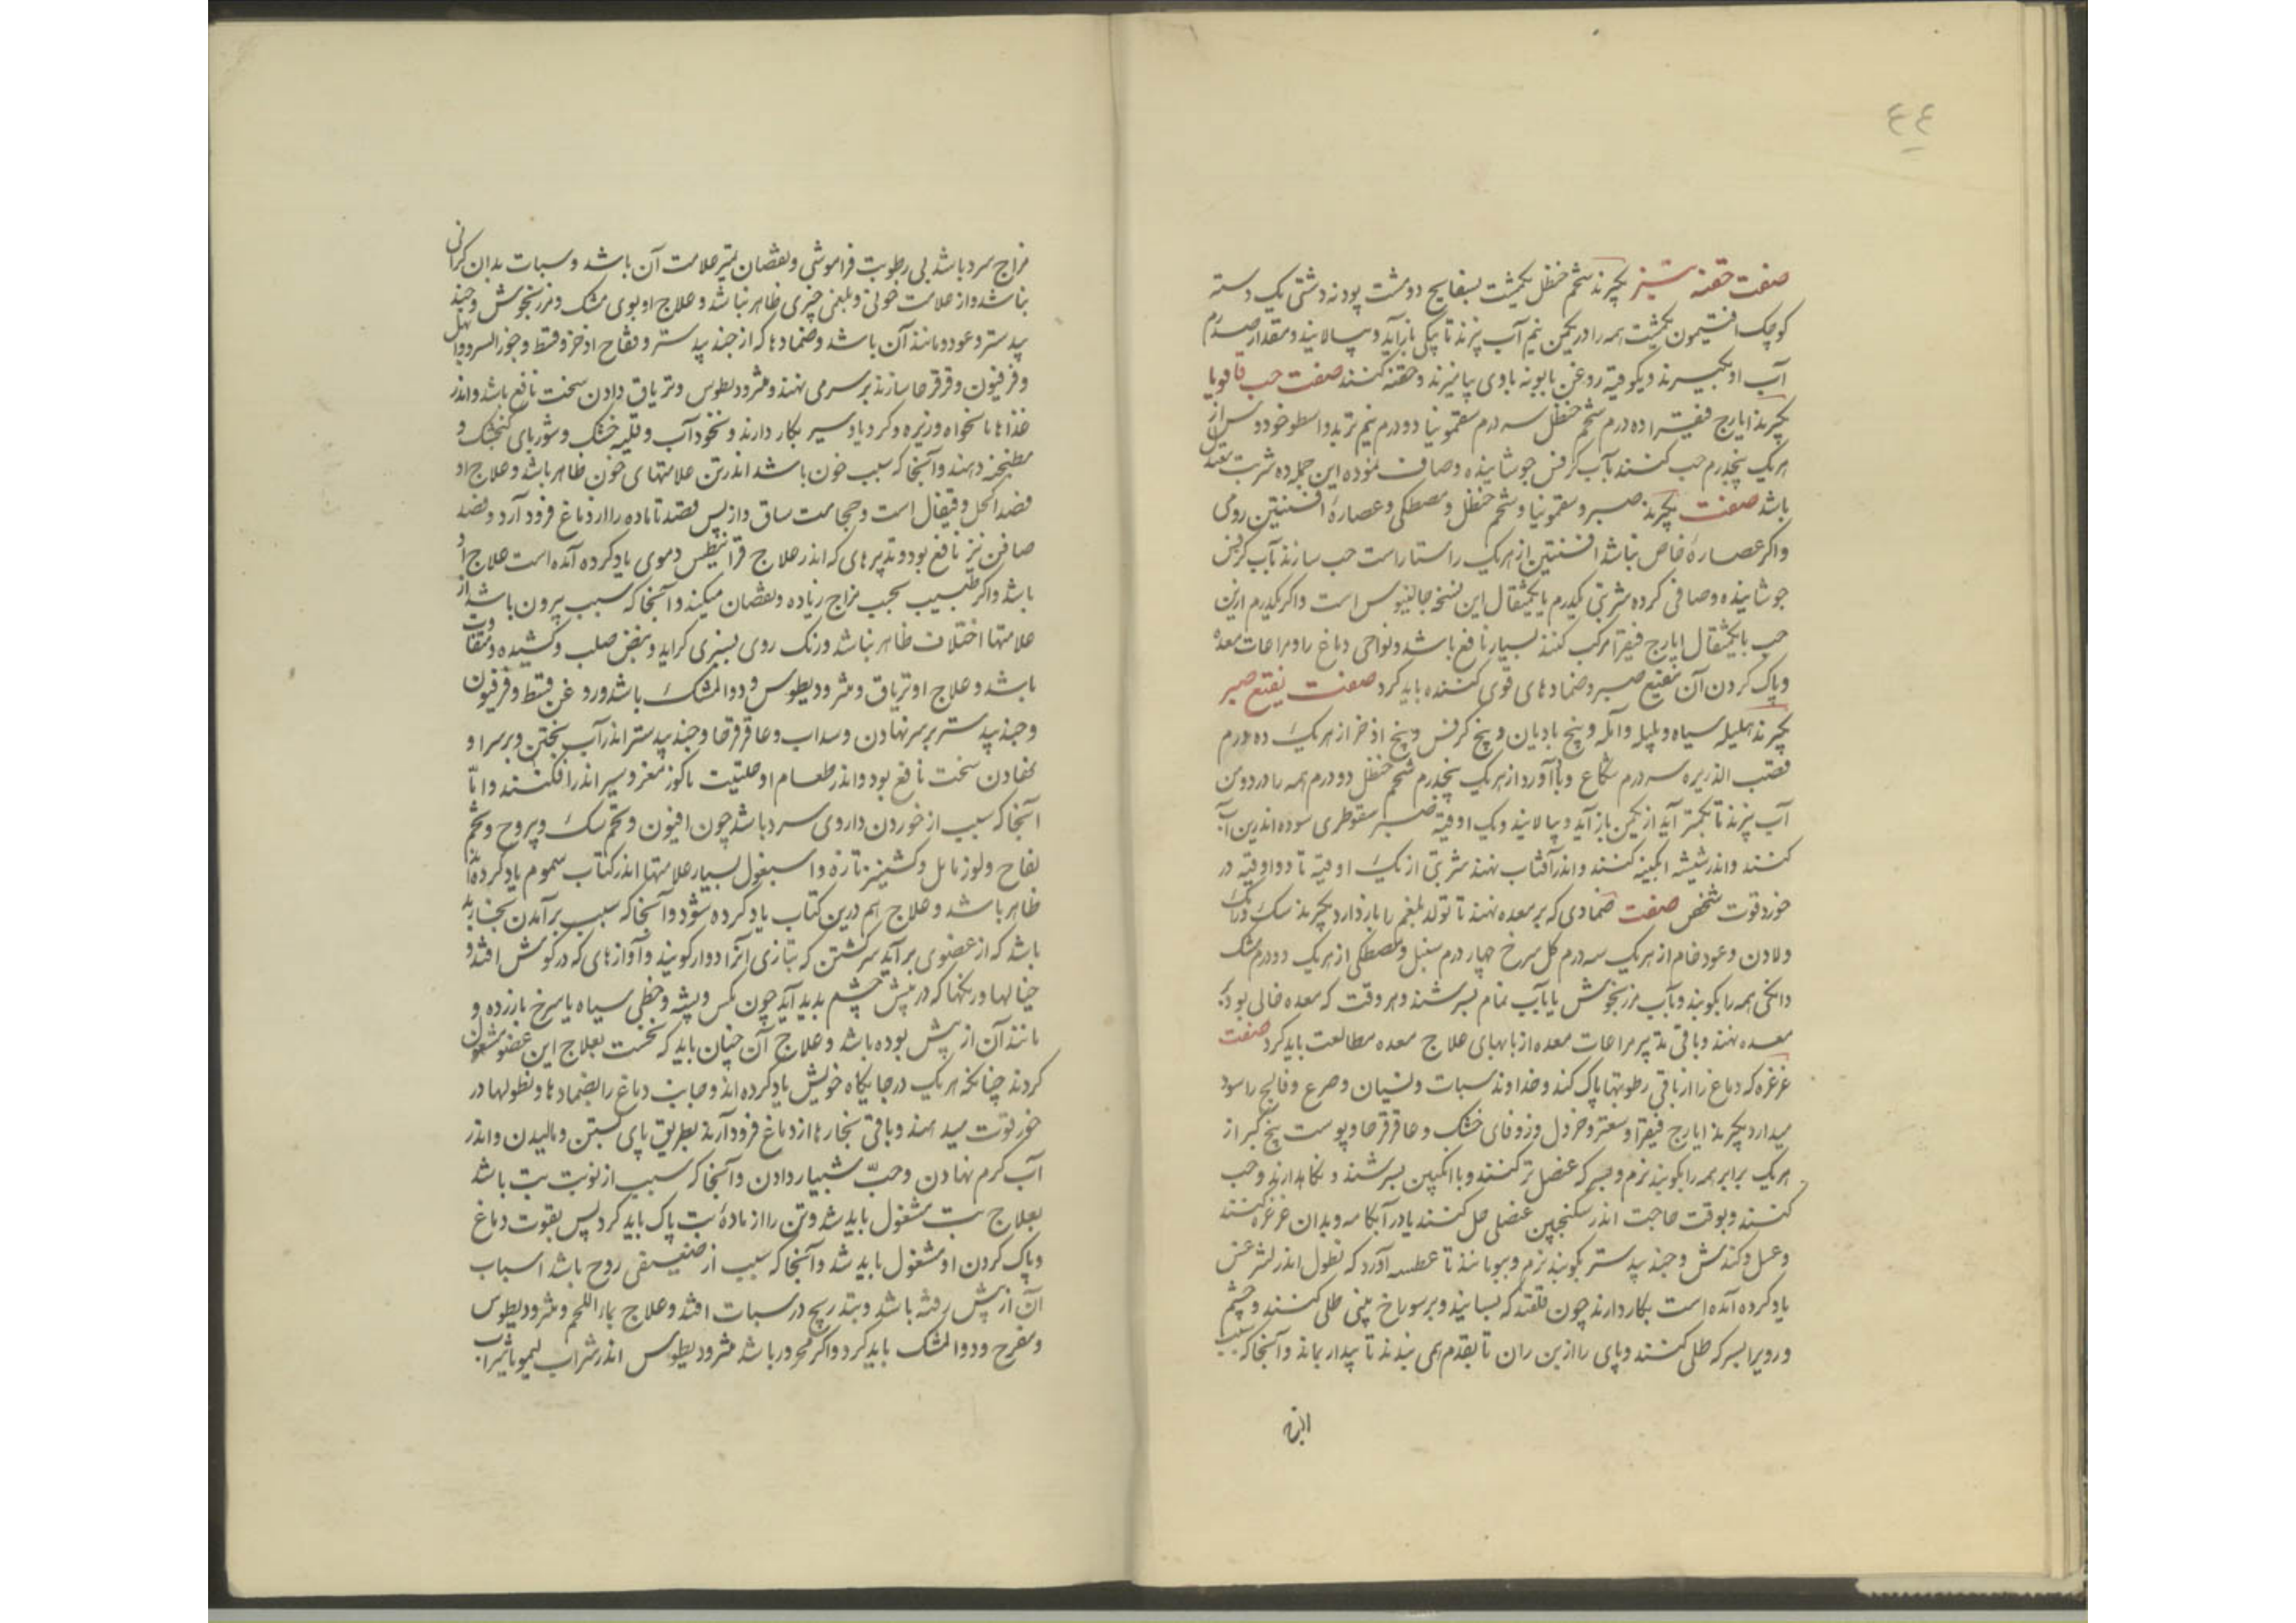 ٤٤
صفت حقنه تیز بگیرند شحم حنظل یکمشت بسفایج دو مشت پودنه دشتی یک دسته
کوچک افتیمون یکمشت همه را در یکمن نیم آب بپزند تا بیکی بازآید و بپالایند و مقدار صددرم
آب او بگیرند و یکوقیه روغن بابونه باوی بیامیزند و حقنه کنند صفت حب قاقویا
بگیرند ایارج فیقرا ده درم شحم حنظل سه درم سقمونیا دو درم نیم تربد و اسطوخودوس از
هر یک پنجدرم حب کنند بآب کرفس جوشانیده و صاف نموده این جمله ده شربت معتدل
باشد صفت بگیرند صبر و سقمونیا و شحم حنظل و مصطکی و عصارهٔ افسنتین رومی
واکر عصارهٔ خاص نباشد افسنتین از هر یک راستاراست حب سازند بآب کرفس
جوشانیده و صافی کرده شربتی یکدرم یا یکمثقال این نسخه جالینوس است واکر یکدرم ازین
حب با یکمثقال ایارج فیقرا مرکب کنند بسیار نافع باشد ونواحی دماغ را و مراعات معده
و پاک کردن آن بنقیع صبر و ضمادهای قوی کننده باید کرد صفت نقیع صبر
بگیرند هلیله سیاه و بلیله و آمله و بیخ بادیان و بیخ کرفس و بیخ اذخر از هر یک ده درم
قصب الذریره سه درم شکاع و بادآورد از هر یک پنجدرم شحم حنظل دو درم همه را در دو من
آب بپزند تا بکمتر آید از یکمن بازآید و بپالایند و یک اوقیه صبر سقوطری سوده اندرین آب
کنند واندر شیشه ابکینه کنند واندر آفتاب نهند شربتی از یک اوقیه تا دو اوقیه در
خورد قوت شخص صفت ضمادی که بر معده نهند تا تولد بلغم را بازدارد بگیرند سک و رامک
و لادن و عود خام از هر یک سه درم کل سرخ چهار درم سنبل و مصطکی از هر یک دو درم مشک
دانکی همه را بکوبند و بآب مرزنجوش یا بآب نمام بسرشند و هر وقت که معده خالی بود بر
معده نهند و باقی تدبیر مراعات معده از بابهای علاج معده مطالعت باید کرد صفت
غرغره که دماغ را از باقی رطوبتها پاک کند و خداوند سبات و نسیان و صرع و فالج را سود
میدارد بگیرند ایارج فیقرا و سعتر و خردل و زوفای خشک و عاقرقرحا و پوست بیخ کبر از
هر یک برابر همه را بکوبند نرم و بسرکه عنصل تر کنند و باانکبین بسرشند و نکاهدارند و حب
کنند و بوقت حاجت اندر سکنجبین عنصلی حل کنند یا در آبکامه و بدان غرغره کنند
و عسل و کندش و جندبیدستر بکوبند نرم و ببویانند تا عطسه آورد که نطول اندر لثرغس
یاد کرده آمده است بکار دارند چون قلقند که بسایند و بر سوراخ بینی طلی کنند و چشم
و رویرا بسرکه طلی کنند و پای را از بن ران تا بقدم همی بندند تا بیدار بماند و آنجا که سبب
مزاج سرد باشد بی رطوبت فراموشی و نقصان تمیز علامت آن باشد و سبات بدان کرانی
نباشد واز علامت خونی و بلغمی چیزی ظاهر نباشد و علاج او بوی مشک و مرزنجوش و جند
بیدستر و عود و مانند آن باشد و ضمادها که از جندبیدستر و فقاح اذخر و قسط و جوز السرو و ابهل
و فرفیون و قرقرحا سازند بر سر می نهند و مثرودیطوس و تریاق دادن سخت نافع باشد واندر
غذاها نانخواه و زیره و کرویا و سیر بکار دارند و نخودآب و قلیه خشک و شوربای کنجشک و
مطنجنه دهند و آنجا که سبب خون باشد اندر تن علامتهای خون ظاهر باشد و علاج او
فصد اکحل و قیفال است و حجامت ساق و از پس فصد تا ماده را از دماغ فرود آرد و فصد
صافن نیز نافع بود و تدبیرهای که اندر علاج قرانیطس دموی یاد کرده آمده است علاج او
باشد واکر طبیب بحسب مزاج زیاده و نقصان میکند و آنجا که سبب بیرون باشد از
علامتها اختلاف ظاهر نباشد و رنک روی بسبزی کراید و نبض صلب و کشیده و متفاوت
باشد و علاج او تریاق و مثرودیطوس و دوا المشک باشد و روغن قسط و فرفیون
و جندبیدستر بر سر نهادن و سداب و عاقرقرحا و جندبیدستر اندر آب پختن و بر سر او
نهادن سخت نافع بود واندر طعام او حلتیت با کوز مغز و سیر اندر افکنند واما
آنجا که سبب از خوردن داروی سرد باشد چون افیون و تخم بنک و یبروح و تخم
لفاح و لوز ماثل و کشنیز تازه و اسبغول بسیار علامتها اندر کتاب سموم یاد کرده آید
ظاهر باشد و علاج هم درین کتاب یاد کرده شود و آنجا که سبب برآمدن بخار بد
باشد که از عضوی برآید سرکشتن که بتازی آنرا دوار کویند و آوازهای که در کوش افتد و
خیالها و رنکها که در پیش چشم پدید آید چون مکس و پشه و خطی سیاه یا سرخ یا زرد و
مانند آن از پیش بوده باشد و علاج آن چنان باید که نخست بعلاج این عضو مشغول
کردند چنانکه هر یک در جایکاه خویش یاد کرده اند و جانب دماغ را بضمادها و نطولها در
خور قوت میدهند و باقی بخارها از دماغ فرود آرند بطریق پای بستن و مالیدن واندر
آب کرم نهادن و حبّ شبیار دادن و آنجا که سبب از نوبت تب باشد
بعلاج تب مشغول باید شد و تن را از مادهٔ تب پاک باید کرد پس بقوت دماغ
و پاک کردن او مشغول باید شد و آنجا که سبب از ضعیفی روح باشد اسباب
آن از پیش رفته باشد و بتدریج در سبات افتد و علاج بماء اللحم و مثرودیطوس
و مفرح و دوا المشک باید کرد واکر محرور باشد مثرودیطوس اندر شراب لیمو یا شراب